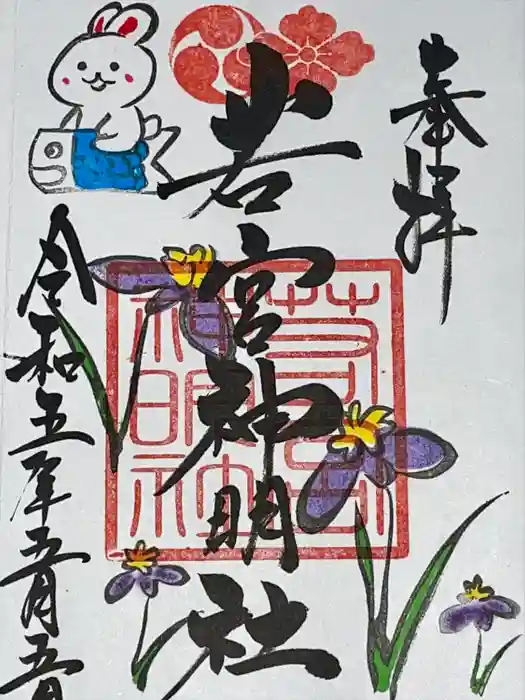 奉拝
若宮神明社
若宮
神明社
令和五年五月五日